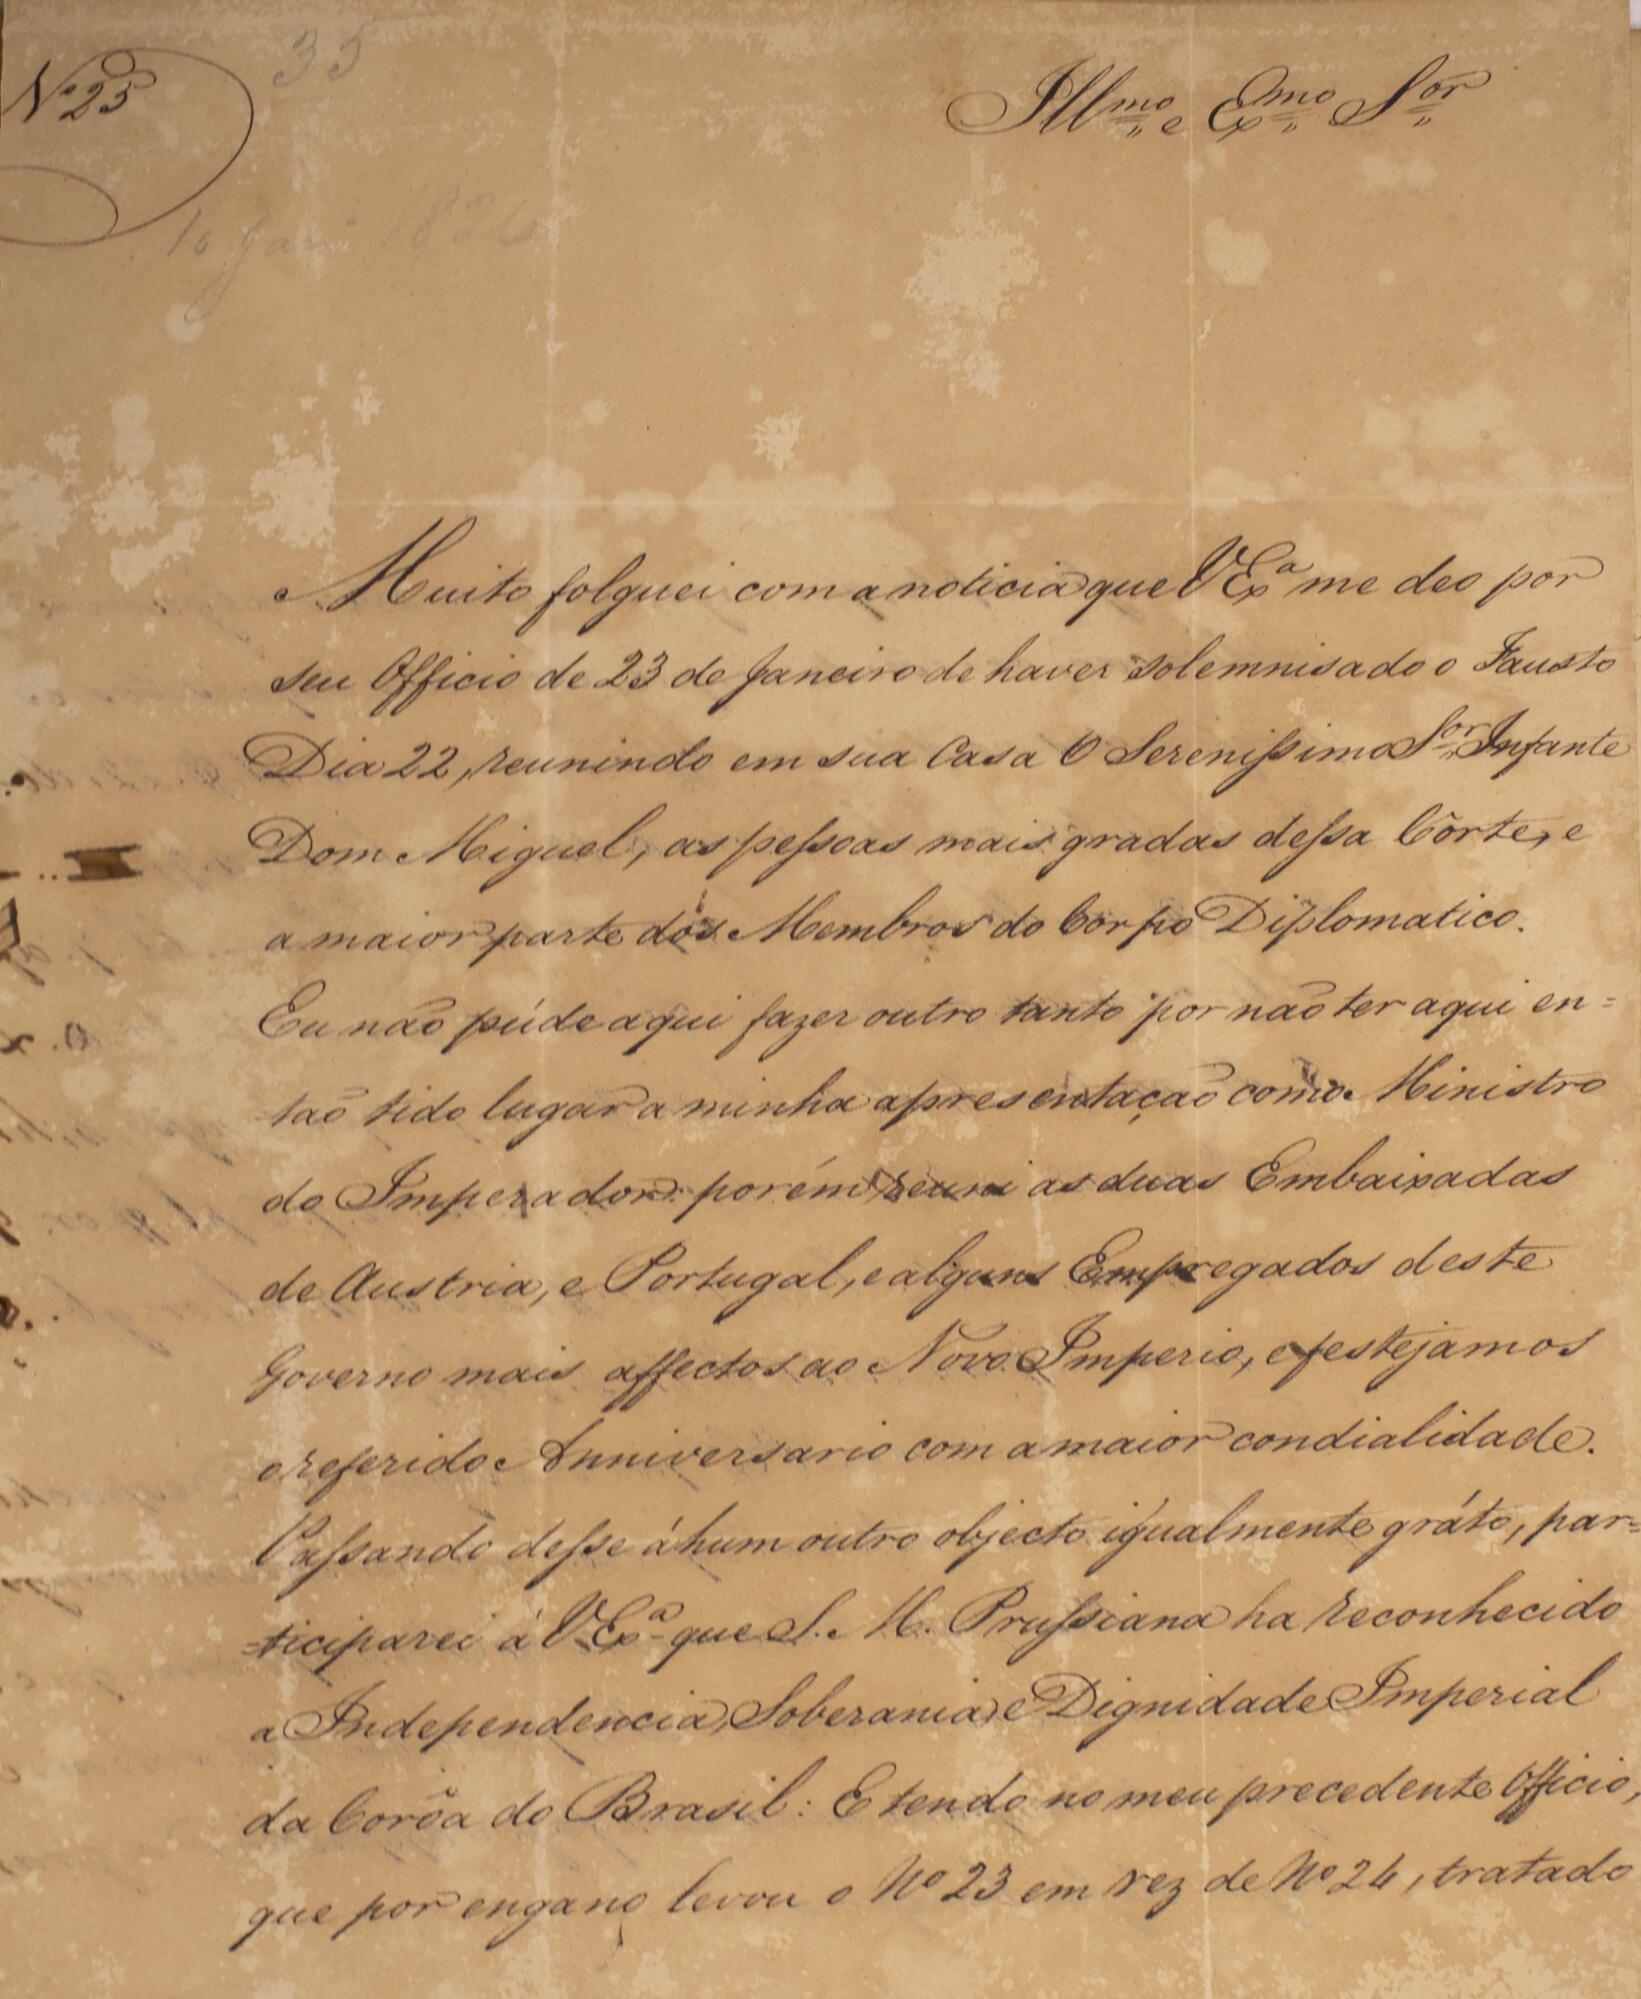 Nº 25
35
Illmo e Exmo Sor
Muito folguei com a noticia que VExa me deo por
seu Officio de 23 de Janeiro de haver solemnisado o Fausto
Dia 22, reunindo em sua Casa O Serenissimo Sor Infante
Dom Miguel, as pessoas mais gradas dessa Côrte, e
a maior parte dos Membros do Corpo Diplomatico.
Eu não púde aqui fazer outro tanto por não ter aqui en=
tão tido lugar a minha apresentação como Ministro
do Imperador: porém reuni as duas Embaixadas
de Austria, e Portugal, e alguns Empregados deste
Governo mais affectos ao Novo Imperio, e festejamos
o referido Anniversario com a maior condialidade.
Passando desse á hum outro objecto igualmente gráto, par=
=ticiparei á VExa que S. M. Prussiana ha reconhecido
a Independencia, Soberania, e Dignidade Imperial
da Corôa do Brasil: E tendo no meu precedente Officio,
que por engano levou o Nº 23 em vez de Nº 24, tratado